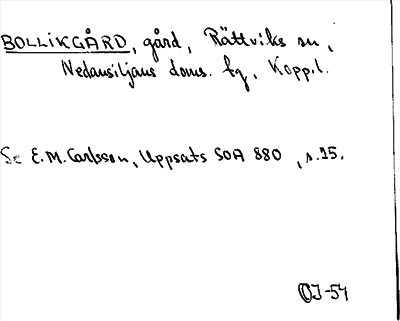 BOLLIKGÅRD, gård, Rättviks sn,
Nedansiljans doms. fg, Kopp.l.
Se E.M. Carlsson, Uppsats SOA 880, s.15.
OJ-54